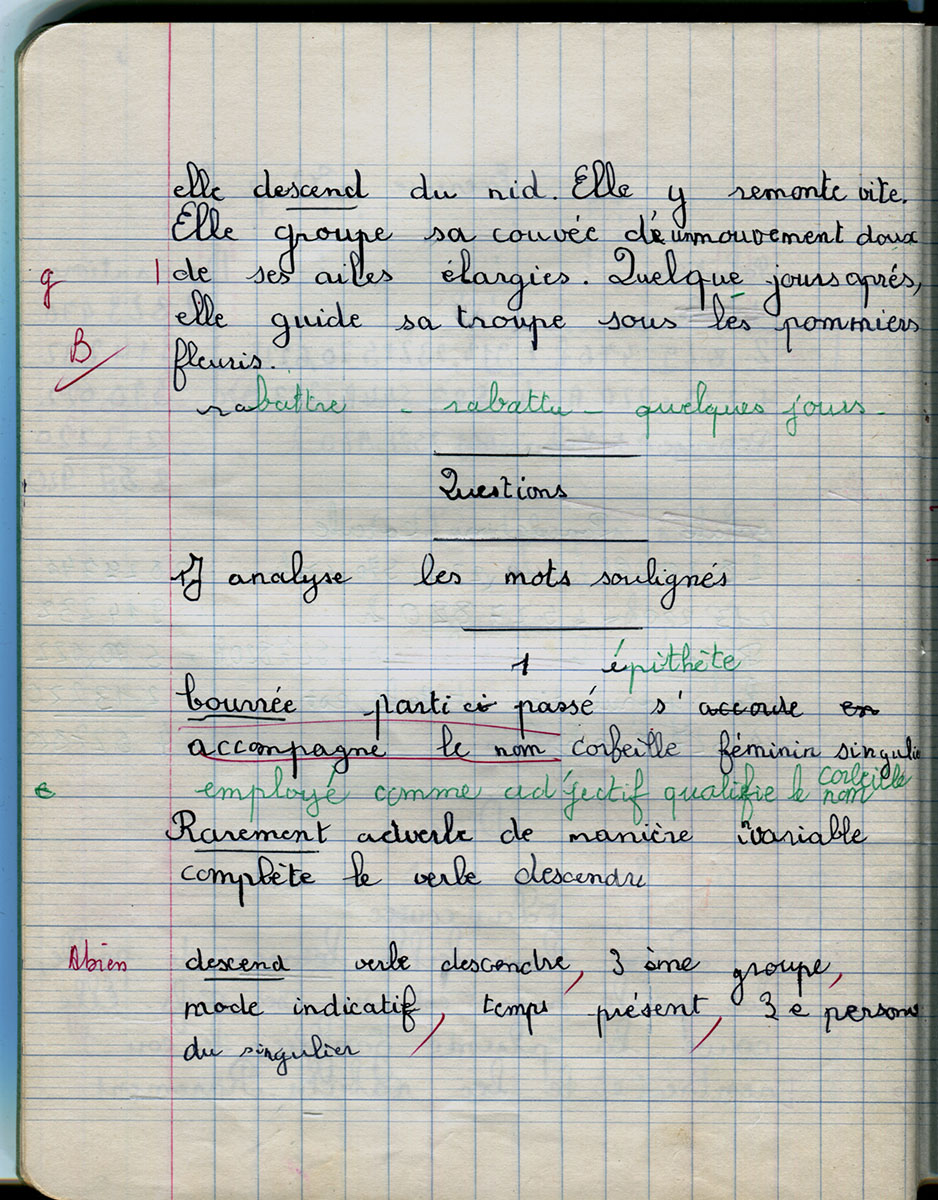 elle descend du nid. Elle y remonte vite.
Elle groupe sa couvée d'un mouvement doux
g de ses ailes élargies. Quelque jours aprés,
elle guide sa troupe sous les pommiers
B fleuris.
rabattre - rabattu - quelques jours -
Questions
1) analyse les mots soulignés
1 épithète
bourrée parti ci passé s' accorde en
accompagne le nom corbeille féminin singulie
employé comme adjectif qualifie le nom corbeille
Rarement adverbe de manière ivariable
complète le verbe descendre
Abien descend verbe descendre, 3 ème groupe,
mode indicatif, temps présent, 3 e person
du singulier